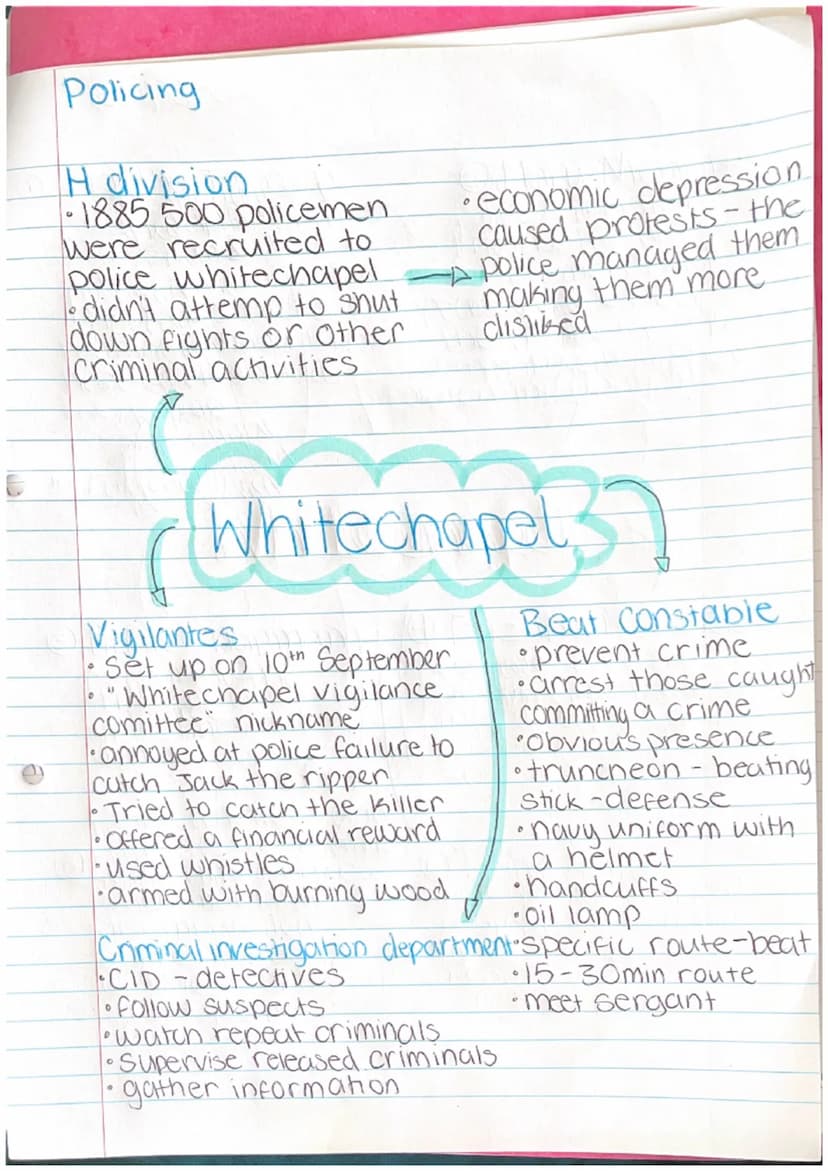 Policing
H division
• 1885 500 policemen
were recruited to
police whitechapel
• didn't attemp to shut
down fights or other
criminal activities
• economic depression
caused protests - the
police managed them
making them more
disliked
Whitechapel
Vigilantes
• set up on 10th September
• "Whitechapel vigilance
comittee" nickname
• annoyed at police failure to
catch Jack the ripper
• Tried to catch the killer
• offered a financial reward
• used whistles
• armed with burning wood
Beat Constable
• prevent crime
• arrest those caught
committing a crime
• obvious presence
• truncheon - beating
stick - defense
• navy uniform with
a helmet
• handcuffs
• oil lamp
• specific route - beat
• 15-30min route
• meet sergant
Criminal investigation department
• CID - detectives
• follow suspects
• watch repeat criminals
• supervise released criminals
• gather information